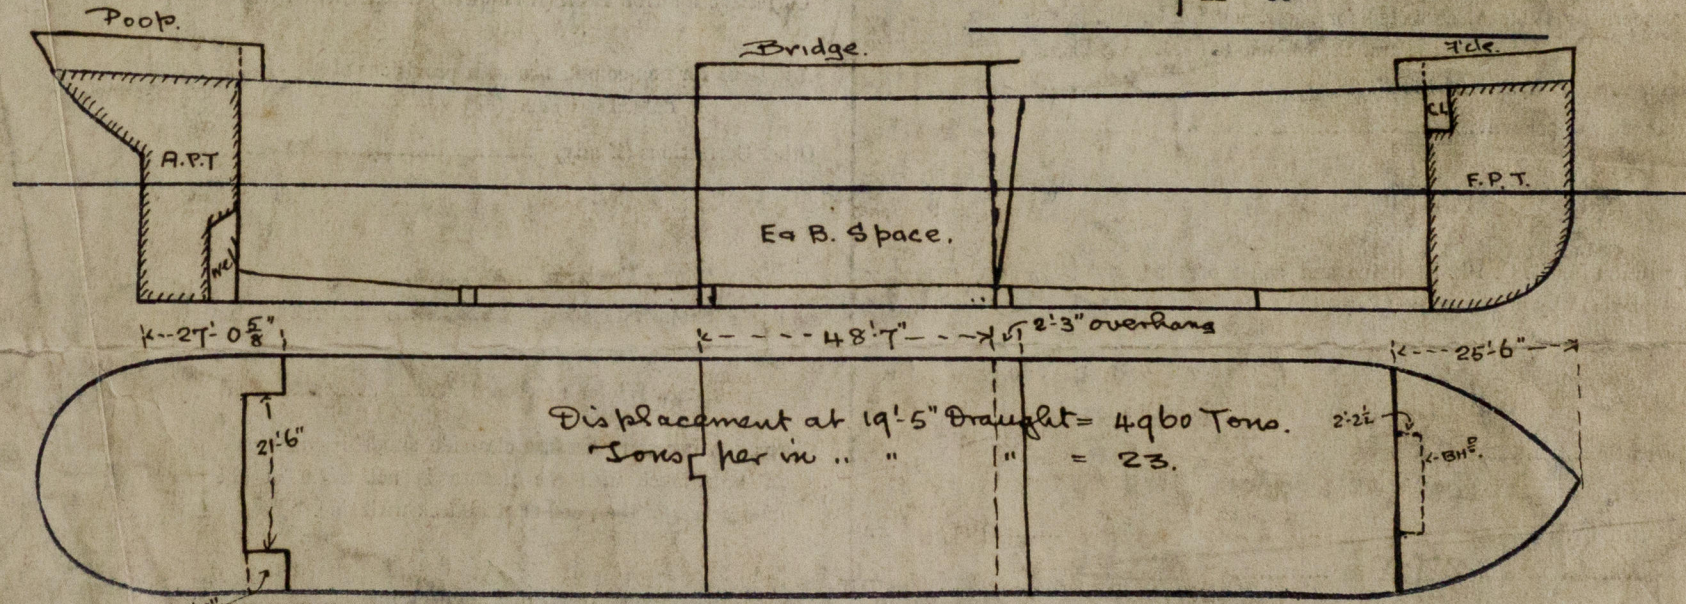 Poop.
Bridge.
F'cle.
C.L
A.P.T
F.P.T.
E & B. Space.
Well
27'-0 5/8"
48'-7"
2'-3" overhang
25'-6"
Displacement at 19'-5" Draught = 4960 Tons.
2'-2½
21'-6"
Tons per in .. " " = 23.
BHD.